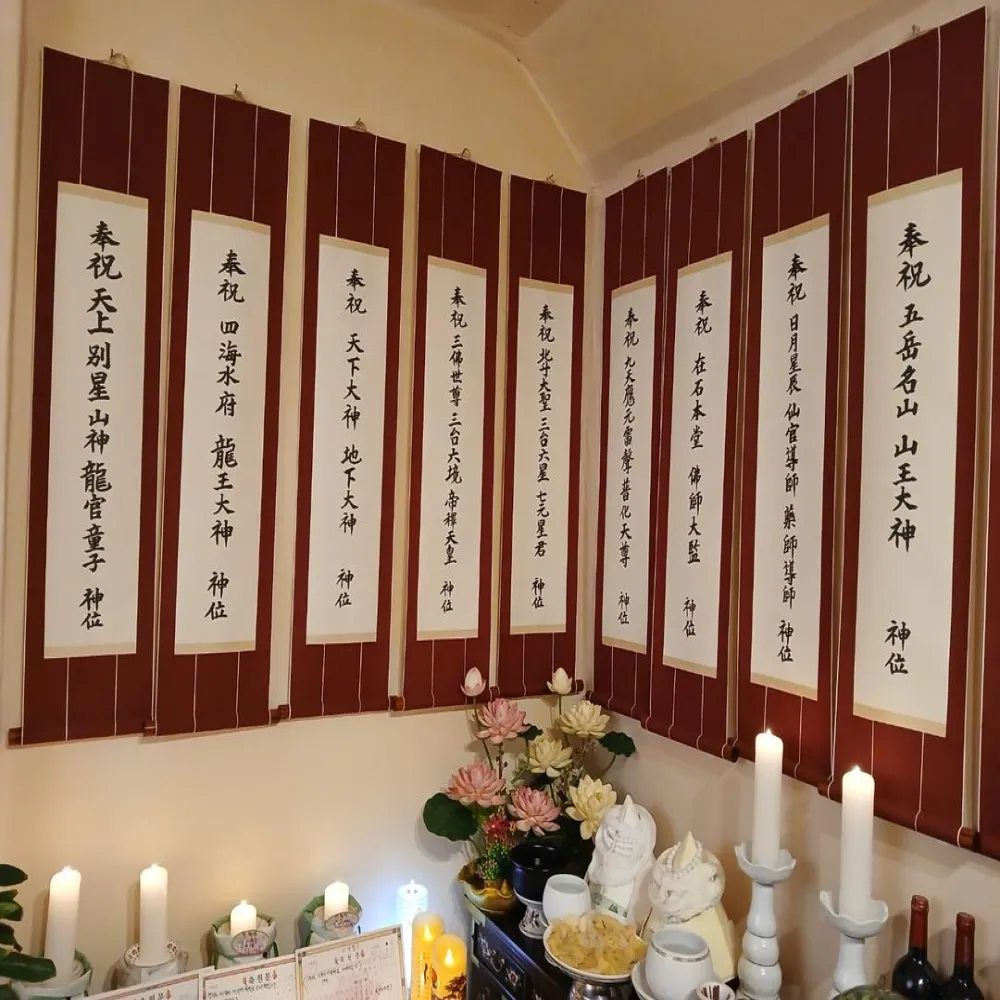 奉祝 天上別星 山神 龍官童子 神位
奉祝 四海水府 龍王大神 神位
奉祝 天下大神 地下大神 神位
奉祝 三佛世尊 三台六境 帝釋天皇 神位
奉祝 北斗大聖 三台六星 七元星君 神位
奉祝 九天應元雷聲普化天尊 神位
奉祝 在石本堂 佛師大監 神位
奉祝 日月星辰 仙官導師 藥師導師 神位
奉祝 五岳名山 山王大神 神位
축원문
축원문
축원문